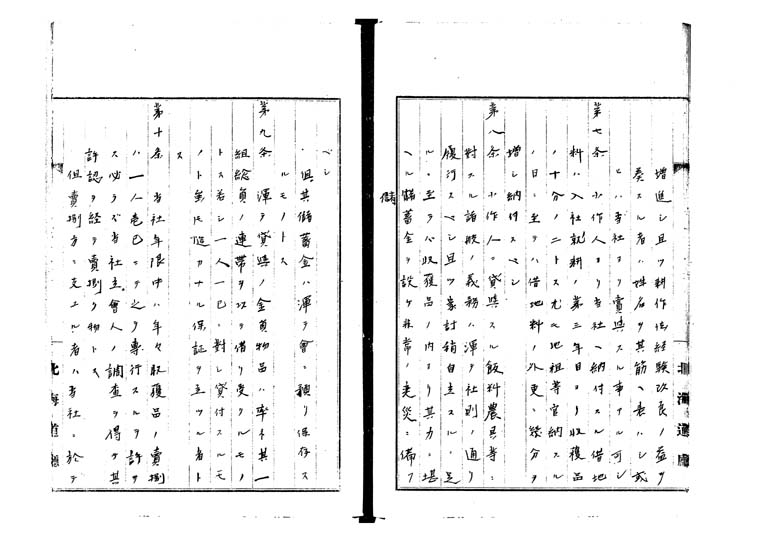 増進シ且ツ耕作法経験改良ノ益ヲ
奏スル者ハ姓名ヲ其筋ヘ表ハシ或
ヒハ当社ヨリ賞与スル事アル可シ
第七条 小作人ヨリ当社ヘ納付スル借地
料ハ入社就耕ノ第三年目ヨリ収穫品
ノ十分ノ二トス尤モ地租等官納スル
ノ日ニ至ラハ借地料ノ外更ニ幾分ヲ
増シ納付スベシ
第八条 小作人ニ貸与スル飯料農具等ニ
対スル諸般ノ義務ハ渾テ社則ノ通リ
履行スベシ且ツ家計稍自主スルニ足
ルニ至ラバ収穫品ノ内ヨリ其力ニ堪
ヘル儲蓄金ヲ設ケ非常ノ天災ニ備フ
儲
ベシ
但其儲蓄金ハ渾テ會社ニ積リ保存ス
ルモノトス
第九条 渾テ貸與ノ金員物品ハ率ネ其一
組総員ノ連帯ヲ以テ借リ受クルモノ
トス若シ一人一己ニ対シ貸付スルモ
ノト雖モ確カナル保証ヲ立ツル者ト
ス
第十条 当社年限中ハ年々収穫品ノ賣捌
ハ一人壱己ニテ之ヲ専行スルヲ許サ
ス必ラズ当社主會人ノ調査ヲ得テ其
許認ヲ経テ賣捌ク物トス
但賣捌方ニ支エル者ハ当社ニ於テ
北海道廳
北海道廳